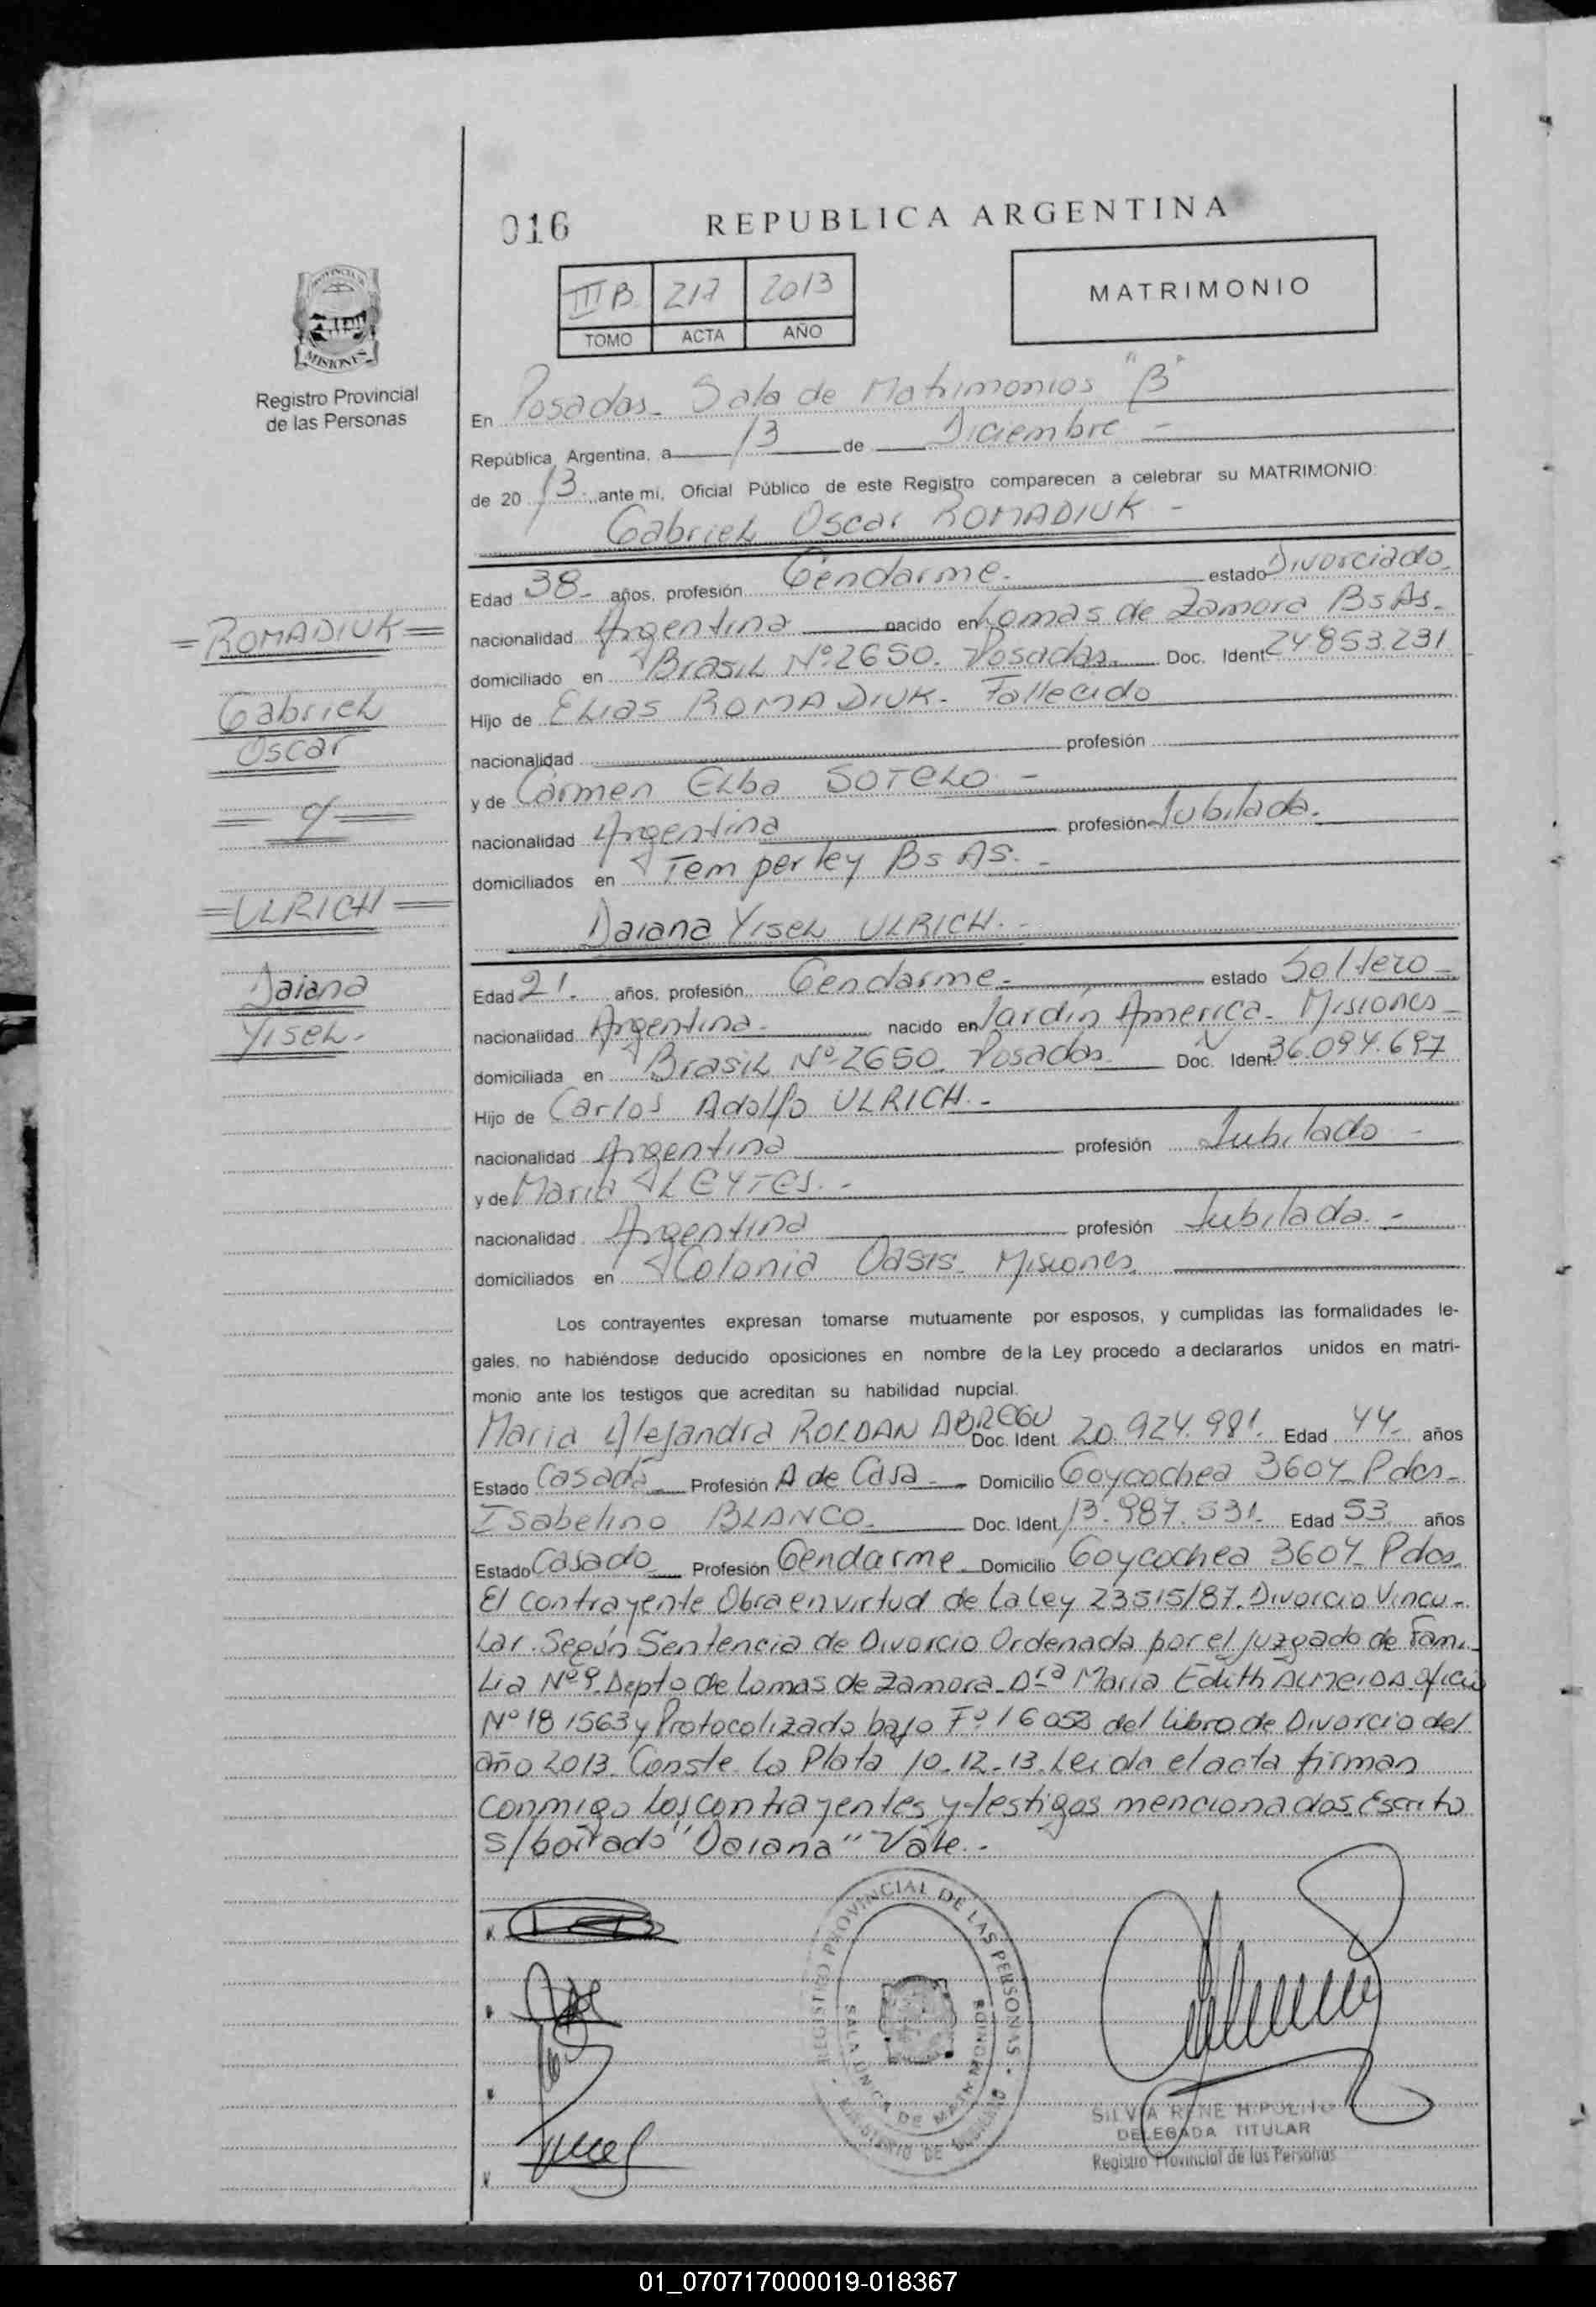 016
REPUBLICA ARGENTINA
III B 217 2013
TOMO ACTA AÑO
MATRIMONIO
PROVINCIA
MISIONES
Registro Provincial
de las Personas
En Posadas - Sala de Matrimonios "B"
República Argentina, a 13 de Diciembre -
de 20 13 ante mi, Oficial Público de este Registro comparecen a celebrar su MATRIMONIO:
Gabriel Oscar ROMADIUK -
Edad 38 - años, profesión Gendarme - estado Divorciado -
nacionalidad Argentina nacido en Lomas de Zamora Bs As -
domiciliado en Brasil Nº 2650. Posadas. Doc. Ident 24.853.231
Hijo de Elias ROMADIUK - Fallecido
nacionalidad profesión
y de Carmen Elba SOTELO -
nacionalidad Argentina profesión Jubilada.
domiciliados en Temperley Bs AS. -
Daiana Yisel ULRICH. -
Edad 21. años, profesión Gendarme - estado Soltero -
nacionalidad Argentina - nacido en Jardín América - Misiones -
domiciliada en Brasil Nº 2650. Posadas Doc. Ident 36.094.697
Hijo de Carlos Adolfo ULRICH. -
nacionalidad Argentina profesión Jubilado -
y de Maria LEYTES. -
nacionalidad Argentina profesión Jubilada. -
domiciliados en Colonia Oasis - Misiones.
Los contrayentes expresan tomarse mutuamente por esposos, y cumplidas las formalidades le-
gales, no habiéndose deducido oposiciones en nombre de la Ley procedo a declararlos unidos en matri-
monio ante los testigos que acreditan su habilidad nupcial.
Maria Alejandra ROLDAN ABREGU Doc. Ident. 20.924.981. Edad 44 - años
Estado Casada Profesión A de Casa - Domicilio Goycochea 3604 - Pdas -
Isabelino BLANCO - Doc. Ident. 13.987.531. Edad 53 años
Estado Casado Profesión Gendarme - Domicilio Goycochea 3604 - Pdas.
El contrayente Obra en virtud de La Ley 23515/87. Divorcio Vincu-
lar. Según Sentencia de Divorcio Ordenada por el juzgado de Fami-
lia Nº 9. Depto de Lomas de Zamora. Dra Maria Edith ALMEIDA. oficio
Nº 181563 y Protocolizado bajo Fº 16053 del Libro de Divorcio del
año 2013. Conste. La Plata 10-12-13. Leida el acta firman
conmigo los contrayentes y testigos mencionados. Escrito
s/borrado "Daiana" Vale. -
= ROMADIUK =
Gabriel
Oscar
= y =
= ULRICH =
Daiana
Yisel -
REGISTRO PROVINCIAL DE LAS PERSONAS
SALA UNICA DE MATRIMONIOS
SILVIA RENE HIPOLITO
DELEGADA TITULAR
Registro Provincial de las Personas
01_070717000019-018367